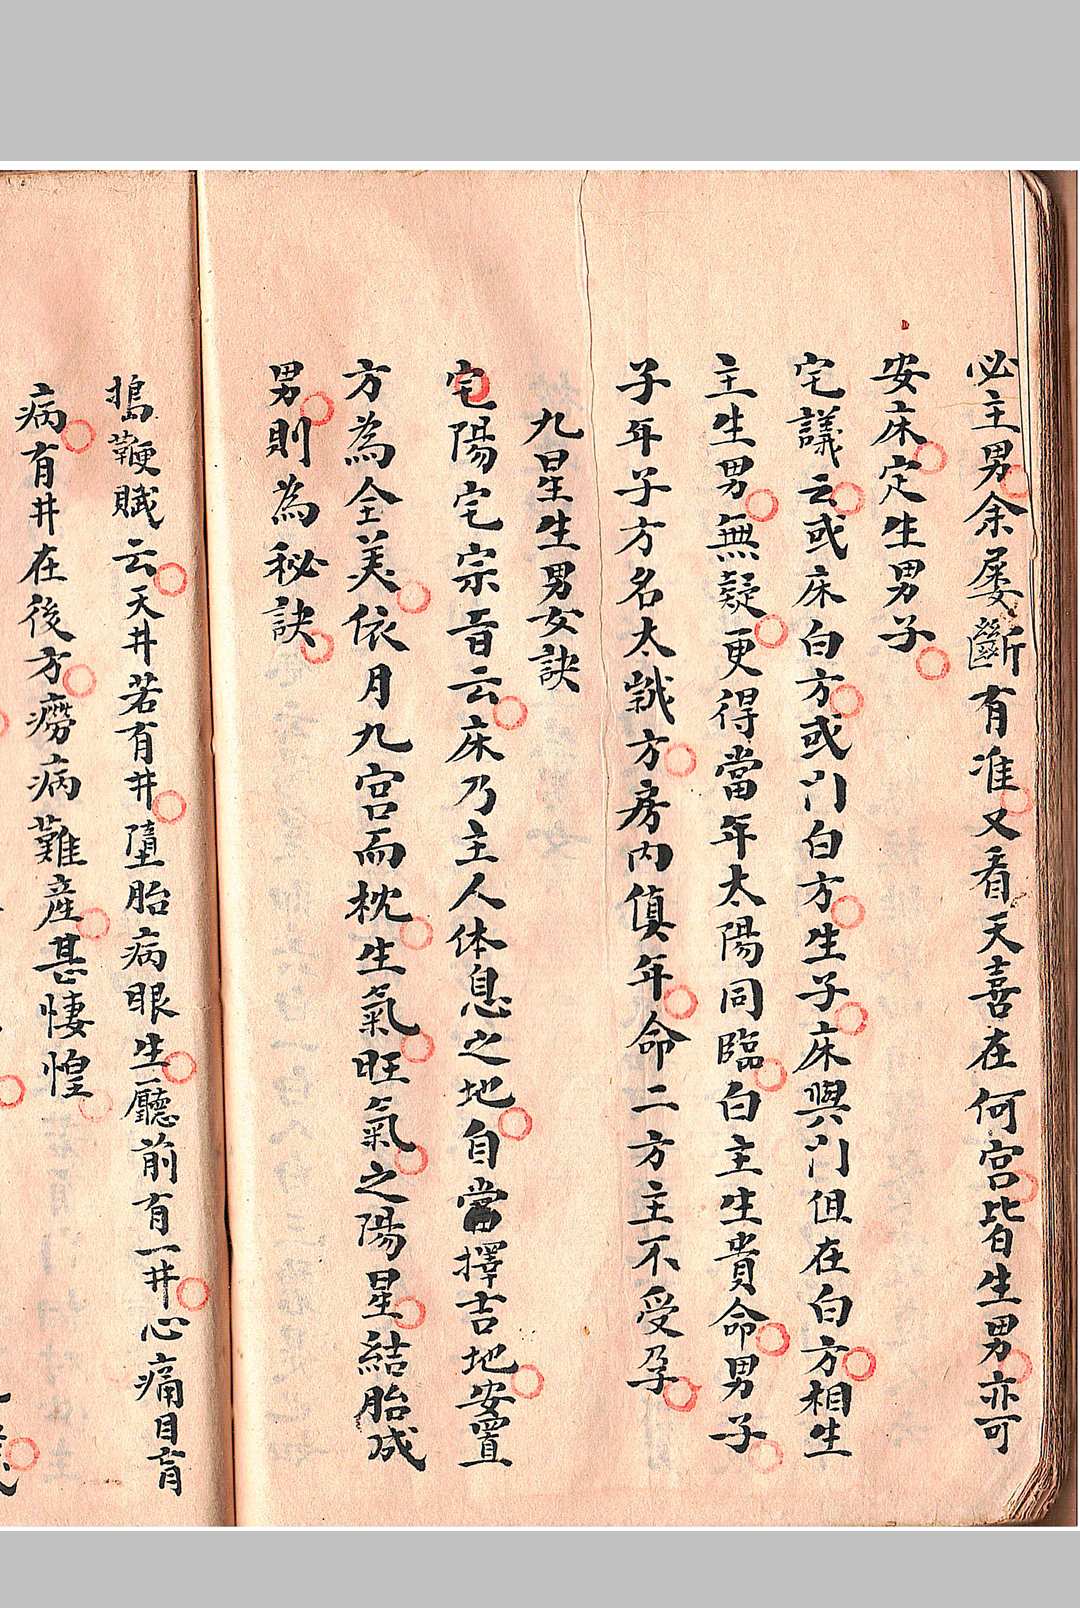 必主男余屡斷有准又看天喜在何宮皆生男亦可
安床定生男子
宅議云或床白方或门白方生子床與门但在白方相生
主生男無疑更得當年太陽同臨白主生貴命男子
子年子方名太歲方房内慎年命二方主不受孕
九星生男女訣
宅陽宅宗旨云床乃主人体息之地自當擇吉地安置
方為全美依月九宮而枕生氣旺氣之陽星結胎成
男則為秘訣
搗鞭賦云天井若有井墮胎病眼生廳前有一井心痛目盲
病有井在後方癆病難産甚悽惶